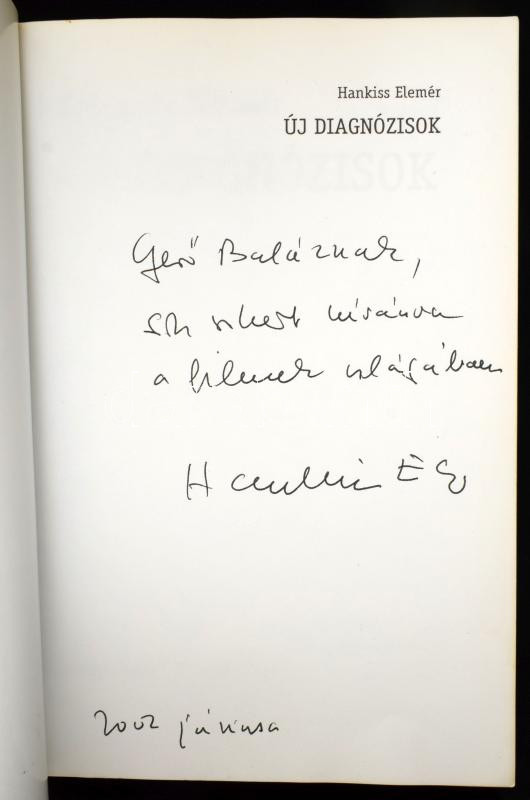 Hankiss Elemér
ÚJ DIAGNÓZISOK
Gerő Baláznak,
sok sikert kívánva
a filmek világában
Hankiss E
2002 június